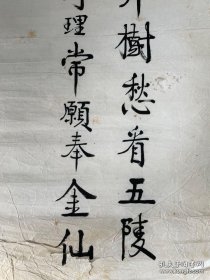 樹愁看五陵
理常願奉金仙